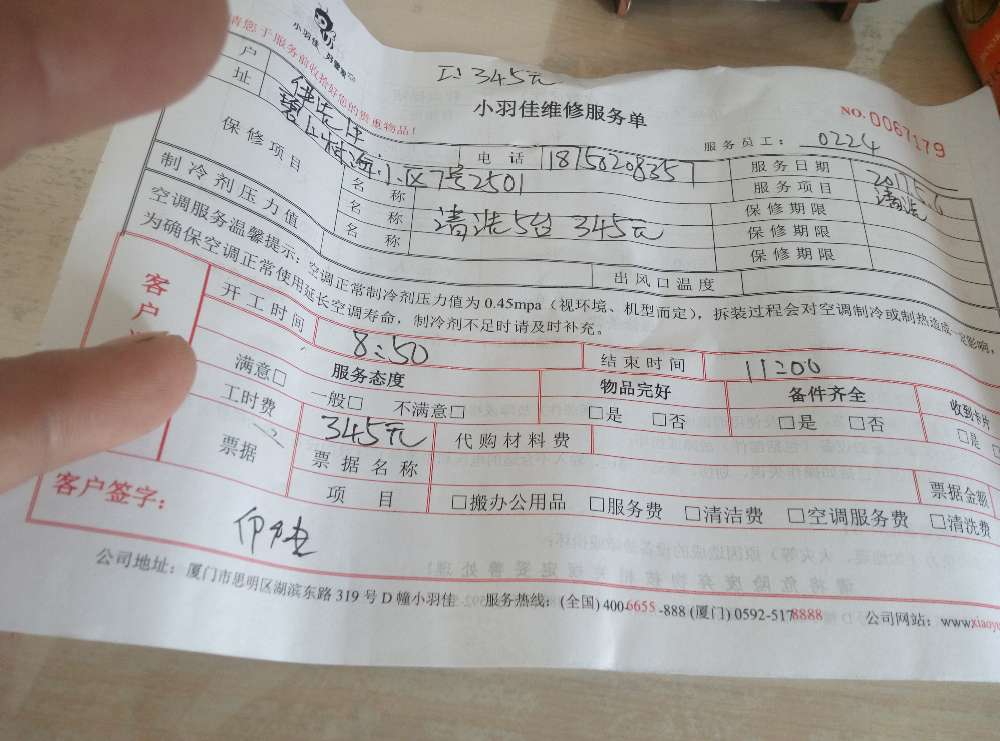 小羽佳 好管家
请您于服务前收拾好您的贵重物品!
工:345元
小羽佳维修服务单
NO.0067179
服务员工: 0224
户
电话 18758208357 服务日期 2017.5.
址 小区7号2501 服务项目 清洗
保修项目 名称 保修期限
名称 清洗5台 345元 保修期限
名称 保修期限
制冷剂压力值 出风口温度
空调服务温馨提示:空调正常制冷剂压力值为0.45mpa(视环境、机型而定),拆装过程会对空调制冷或制热造成一定影响,
为确保空调正常使用延长空调寿命,制冷剂不足时请及时补充。
客户
开工时间 8:50 结束时间 11:00
服务态度 物品完好 备件齐全 收到卡片
满意□ 一般□ 不满意□ □是 □否 □是 □否 □是
工时费 345元 代购材料费
票据 票据名称 票据金额
项目 □搬办公用品 □服务费 □清洁费 □空调服务费 □清洗费
客户签字:
公司地址:厦门市思明区湖滨东路319号D幢小羽佳 服务热线:(全国)400-6655-888 (厦门)0592-5178888 公司网站:www.xiaoyu